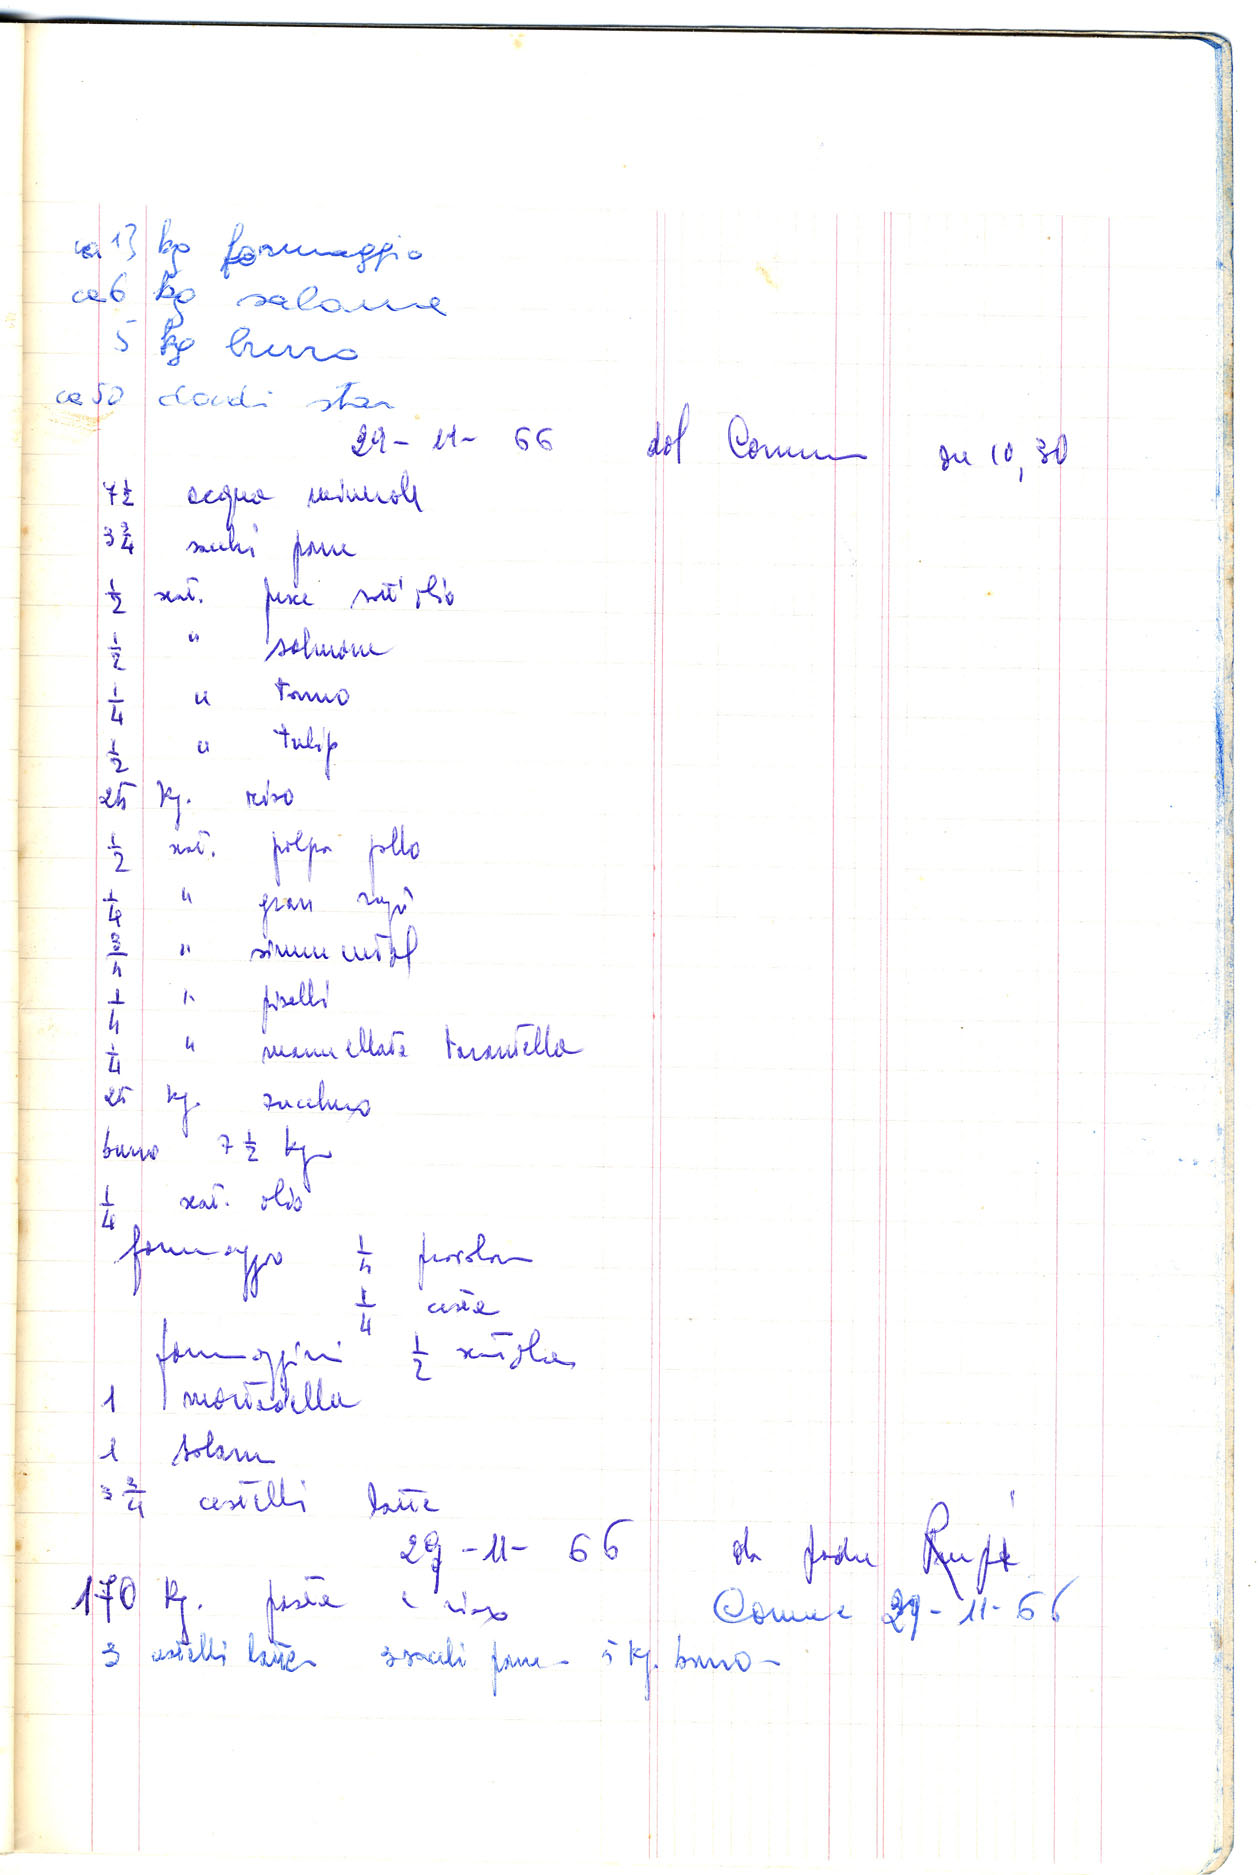 ca 13 kg formaggio
ca 6 kg salame
5 kg burro
ca 50 dadi star
29-11-66 dal Comune ore 10,30
7 1/2 acqua minerale
3 3/4 sacchi pane
1/2 scat. pesce sott'olio
1/2 " salmone
1/4 " tonno
1/2 " tulip
25 kg. riso
1/2 scat. polpa pollo
1/4 " gran ragù
3/4 " simmenthal
1/4 " piselli
1/4 " marmellata tarantella
25 kg. zucchero
burro 7 1/2 kg
1/4 scat. olio
formaggio 1/4 provolone
1/4 cesta
formaggini 1/2 scatola
1 mortadella
1 salame
3 3/4 cestelli latte
29-11-66 da padre
170 kg. pasta e riso Comune 29-11-66
3 cestelli latte 3 sacchi pane - 5 kg. burro -